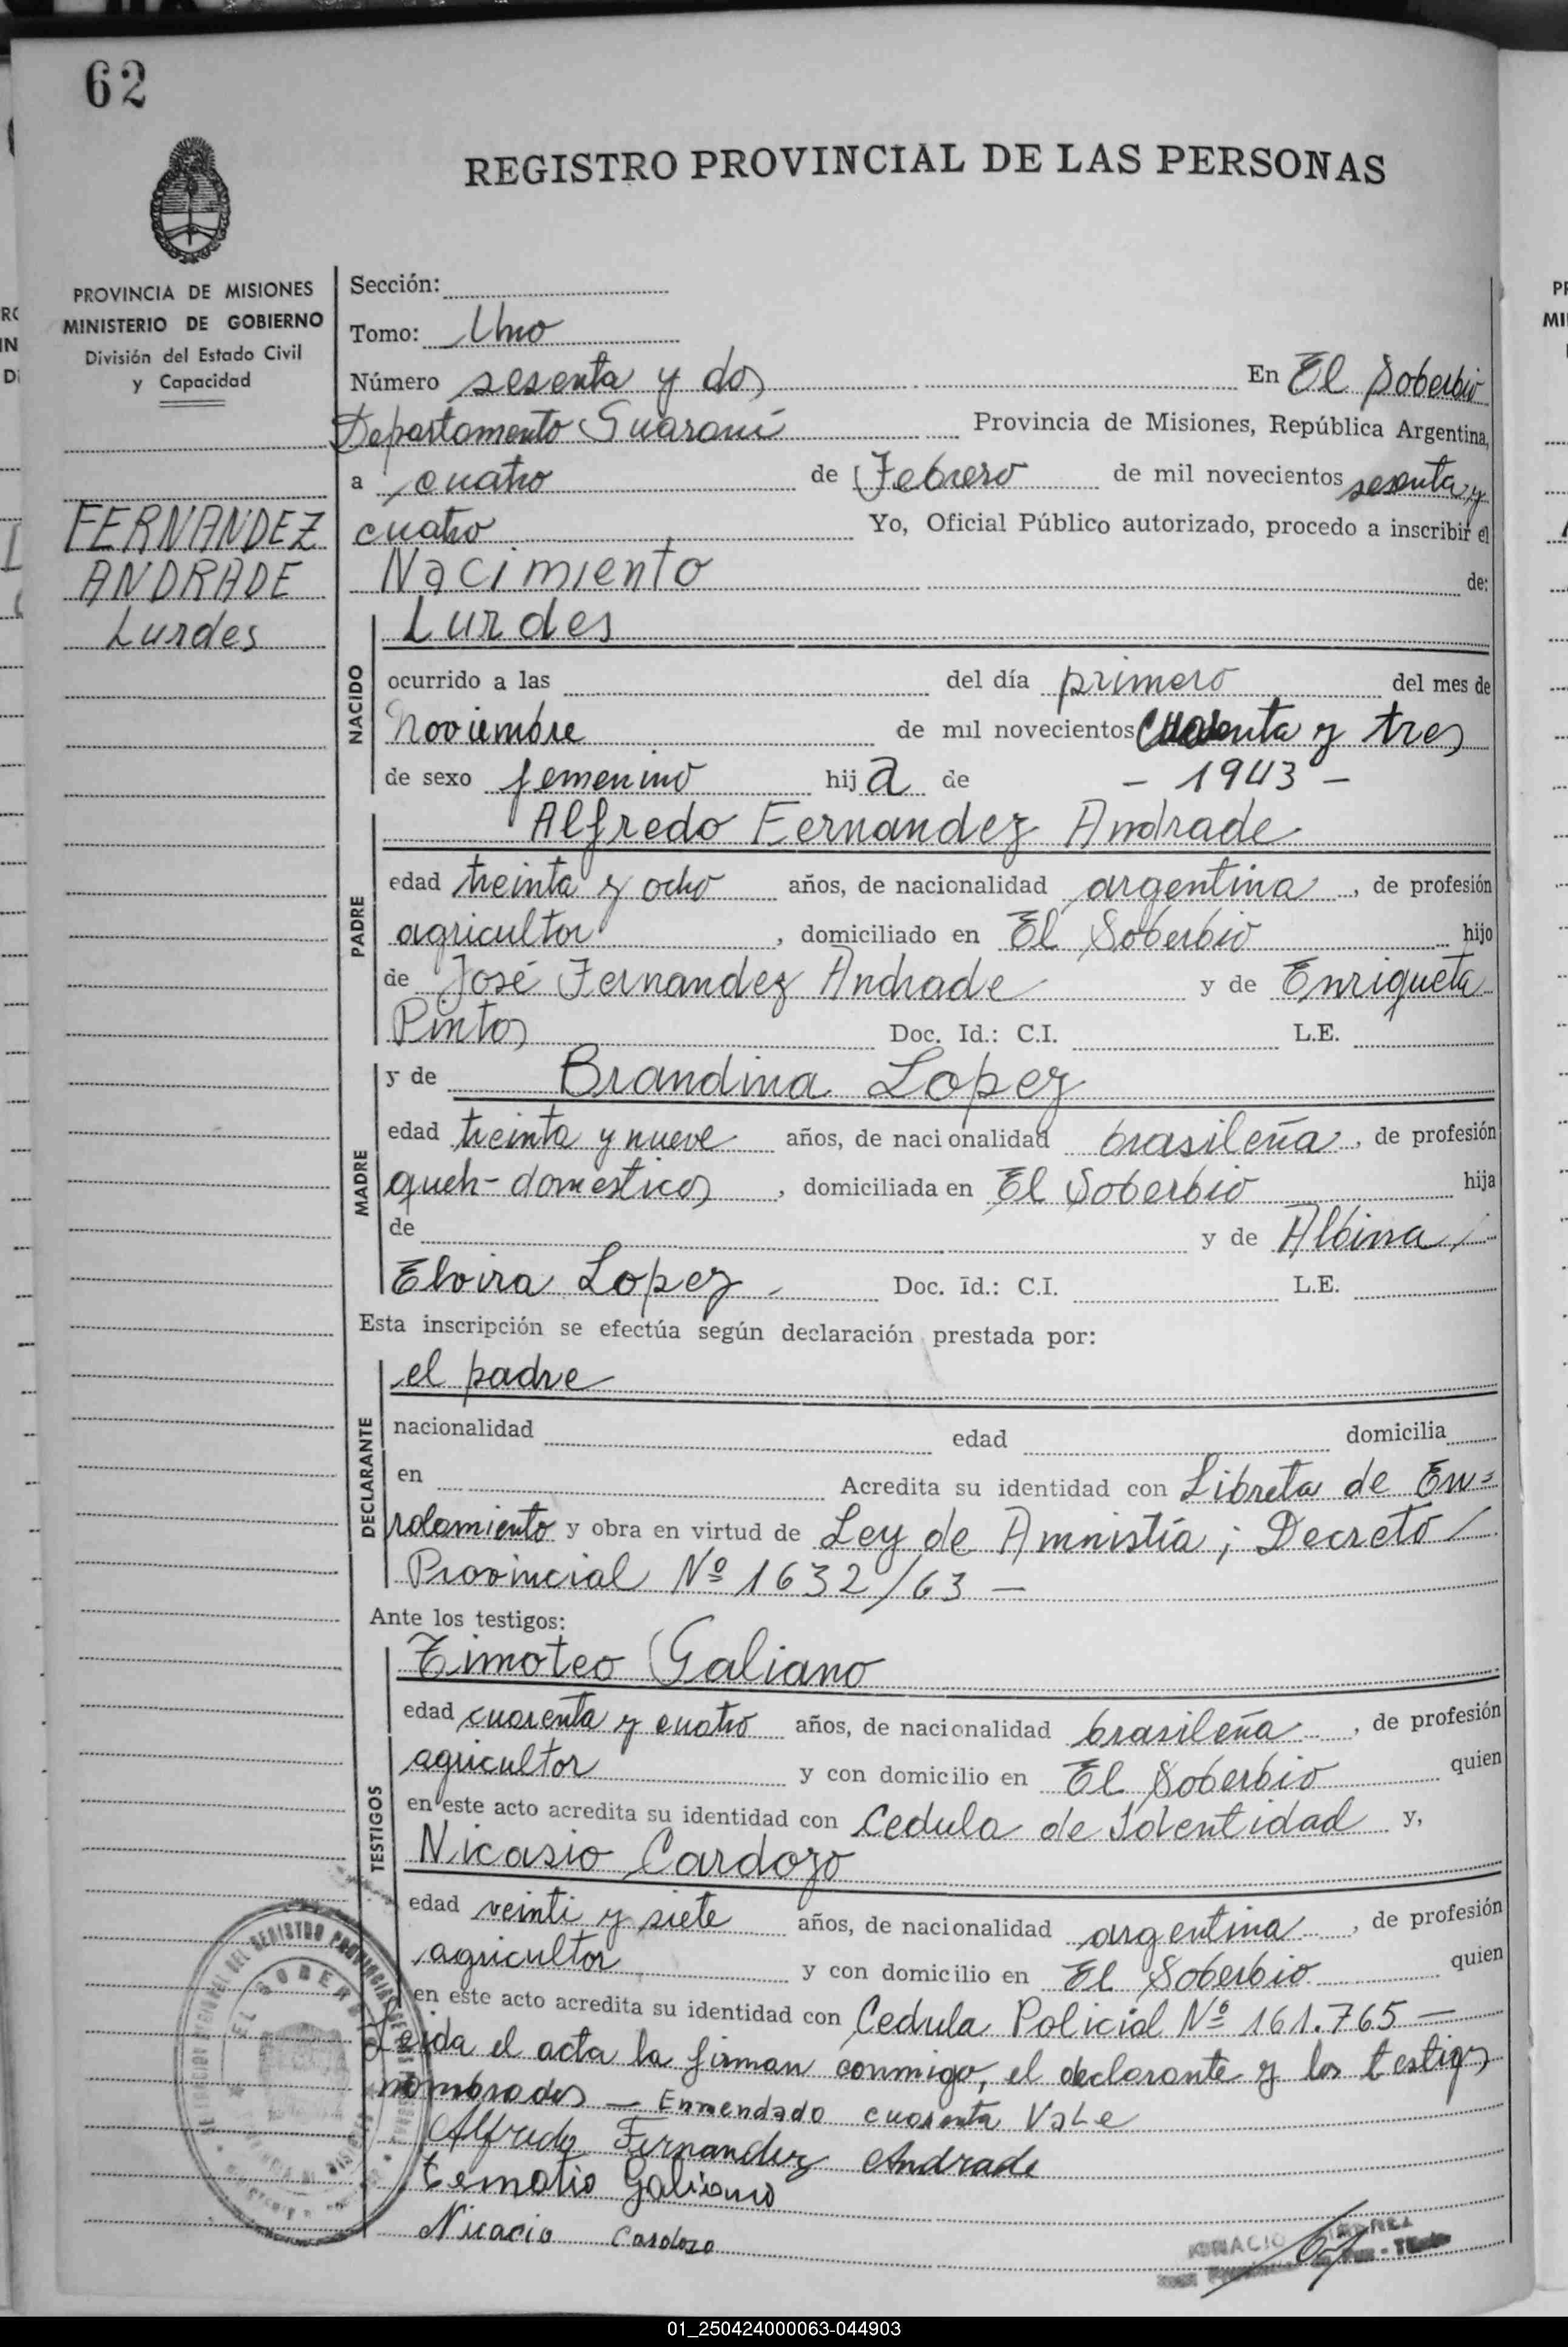 62
REGISTRO PROVINCIAL DE LAS PERSONAS
PROVINCIA DE MISIONES
MINISTERIO DE GOBIERNO
División del Estado Civil
y Capacidad
FERNANDEZ
ANDRADE
Lurdes
Sección:
Tomo: Uno
Número sesenta y dos En El Soberbio
Departamento Guaraní Provincia de Misiones, República Argentina,
a cuatro de Febrero de mil novecientos sesenta y
cuatro Yo, Oficial Público autorizado, procedo a inscribir el
Nacimiento de:
NACIDO
Lurdes
ocurrido a las del día primero del mes de
Noviembre de mil novecientos cuarenta y tres
de sexo femenino hija de - 1943 -
PADRE
Alfredo Fernandez Andrade
edad treinta y ocho años, de nacionalidad argentina, de profesión
agricultor, domiciliado en El Soberbio hijo
de José Fernandez Andrade y de Enriqueta
Pintos Doc. Id.: C.I. L.E.
MADRE
y de Brandina Lopez
edad treinta y nueve años, de nacionalidad brasileña, de profesión
queh-domesticos, domiciliada en El Soberbio hija
de y de Albina /
Elvira Lopez - Doc. Id.: C.I. L.E.
Esta inscripción se efectúa según declaración prestada por:
DECLARANTE
el padre
nacionalidad edad domicilia
en Acredita su identidad con Libreta de En=
rolamiento y obra en virtud de Ley de Amnistía; Decreto /
Provincial Nº 1632/63 -
Ante los testigos:
TESTIGOS
Timoteo Galiano
edad cuarenta y cuatro años, de nacionalidad brasileña, de profesión
agricultor y con domicilio en El Soberbio quien
en este acto acredita su identidad con Cedula de Identidad y,
Nicasio Cardozo
edad veinti y siete años, de nacionalidad argentina, de profesión
agricultor y con domicilio en El Soberbio quien
en este acto acredita su identidad con Cedula Policial Nº 161.765 -
Leida el acta la firman conmigo, el declarante y los testigos
nombrados - Enmendado cuarenta Vale
Alfredo Fernandez Andrade
temotio Galiano
Nicacio Cardozo
01_250424000063-044903